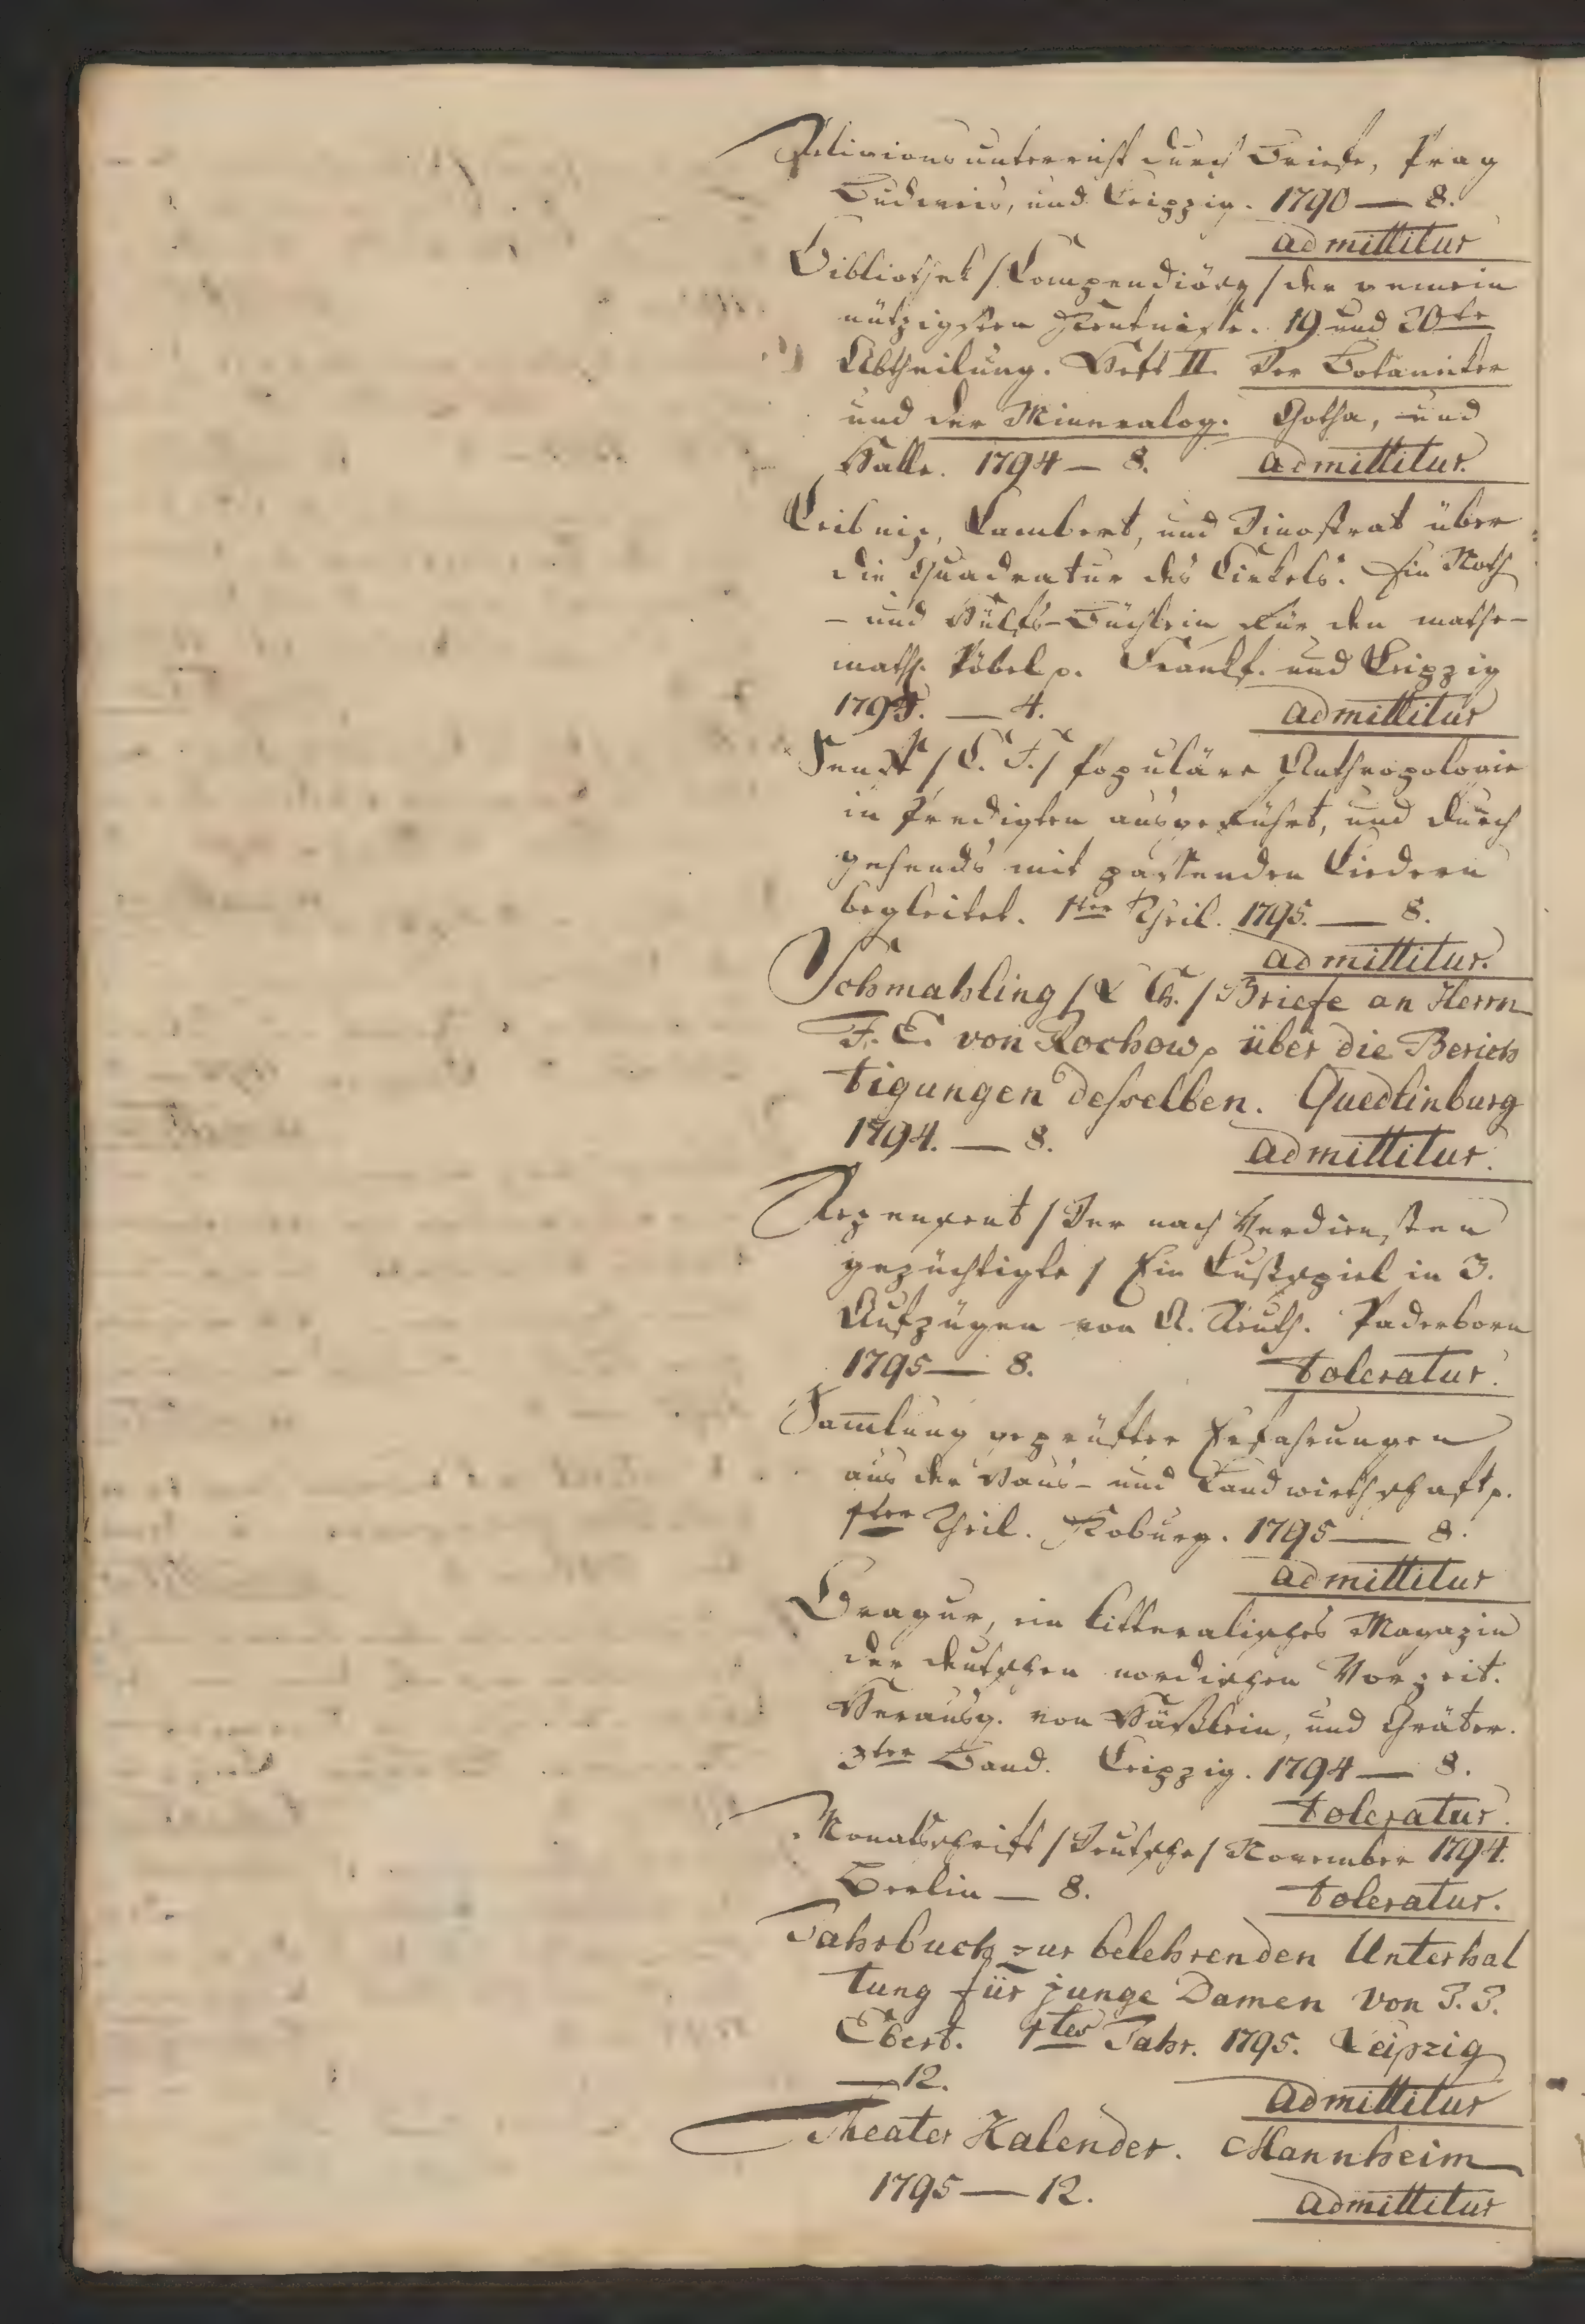 Religionsunterricht durch Briefe, Prag
Budweis, und Leipzig. 1790 — 8.
admittitur
Bibliothek /Compendiöse/ der gemein
nützigsten Kentniße. 19 und 20te
Abtheilung. Heft II. Der Botaniker
und der Mineralog. Gotha, und
Halle. 1794 — 8. admittitur.
Leibniz, Lambert, und Dinostrat über
die Quadratur des Cirkels. Ein Noth
- und Hülfs-Büchlein für den mathe-
math. Pöbel p. Frankf. und Leipzig
1795. — 4. admittitur
/C. F./ Populäre Anthropologie
in Predigten ausgeführt, und durch
gehends mit passenden Liedern
begleitet. 1ter Theil. 1795. — 8.
admittitur.
Schmahling /L Ch./ Briefe an Herrn
F. E. von Rochow p über die Berich
tigungen desselben. Quedlinburg
1794. — 8. admittitur.
Rezensent /Der nach Verdiensten
gezüchtigte/ Ein Lustspiel in 3.
Aufzügen von A. Reuth. Paderborn
1795 — 8. toleratur.
Sam̅lung geprüfter Erfahrungen
aus der Haus- und Landwirthschaft p.
1ter Theil. Koburg. 1795 — 8.
admittitur
Bragur, ein litteralisches Magazin
der deutschen nordischen Vorzeit.
Herausg. von Häßlein, und Gräter.
3ter Band. Leipzig. 1794 — 8.
toleratur.
Monatsschrift /Deutsche/ November 1794.
Berlin — 8. toleratur.
Jahrbuch zur belehrenden Unterhal
tung für junge Damen von J. J.
Ebert. 1tes Jahr. 1795. Leipzig
— 12. admittitur
Theater Kalender. Mannheim
1795 — 12. admittitur